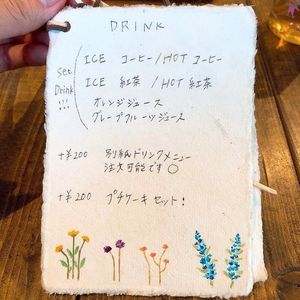 DRINK
Set Drink!!!
ICE コーヒー/HOT コーヒー
ICE 紅茶 /HOT 紅茶
オレンジジュース
グレープフルーツジュース
+¥200 別紙ドリンクメニュー
注文可能です○
+¥200 プチケーキセット!